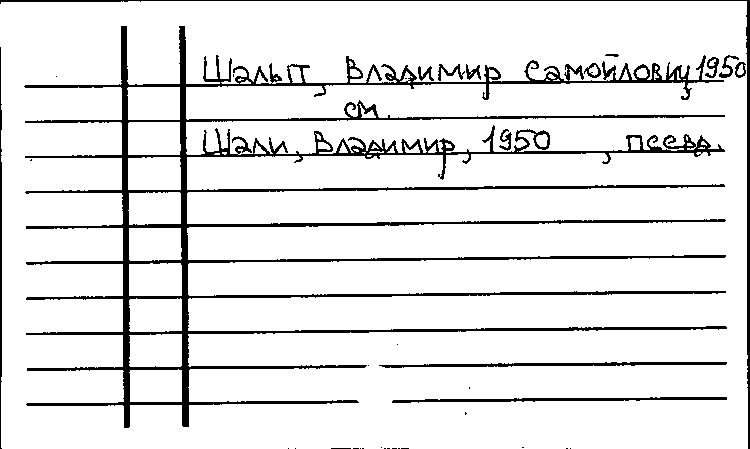 Шальт, Владимир Самойлович, 1950
см.
Шали, Владимир, 1950 , псевд.